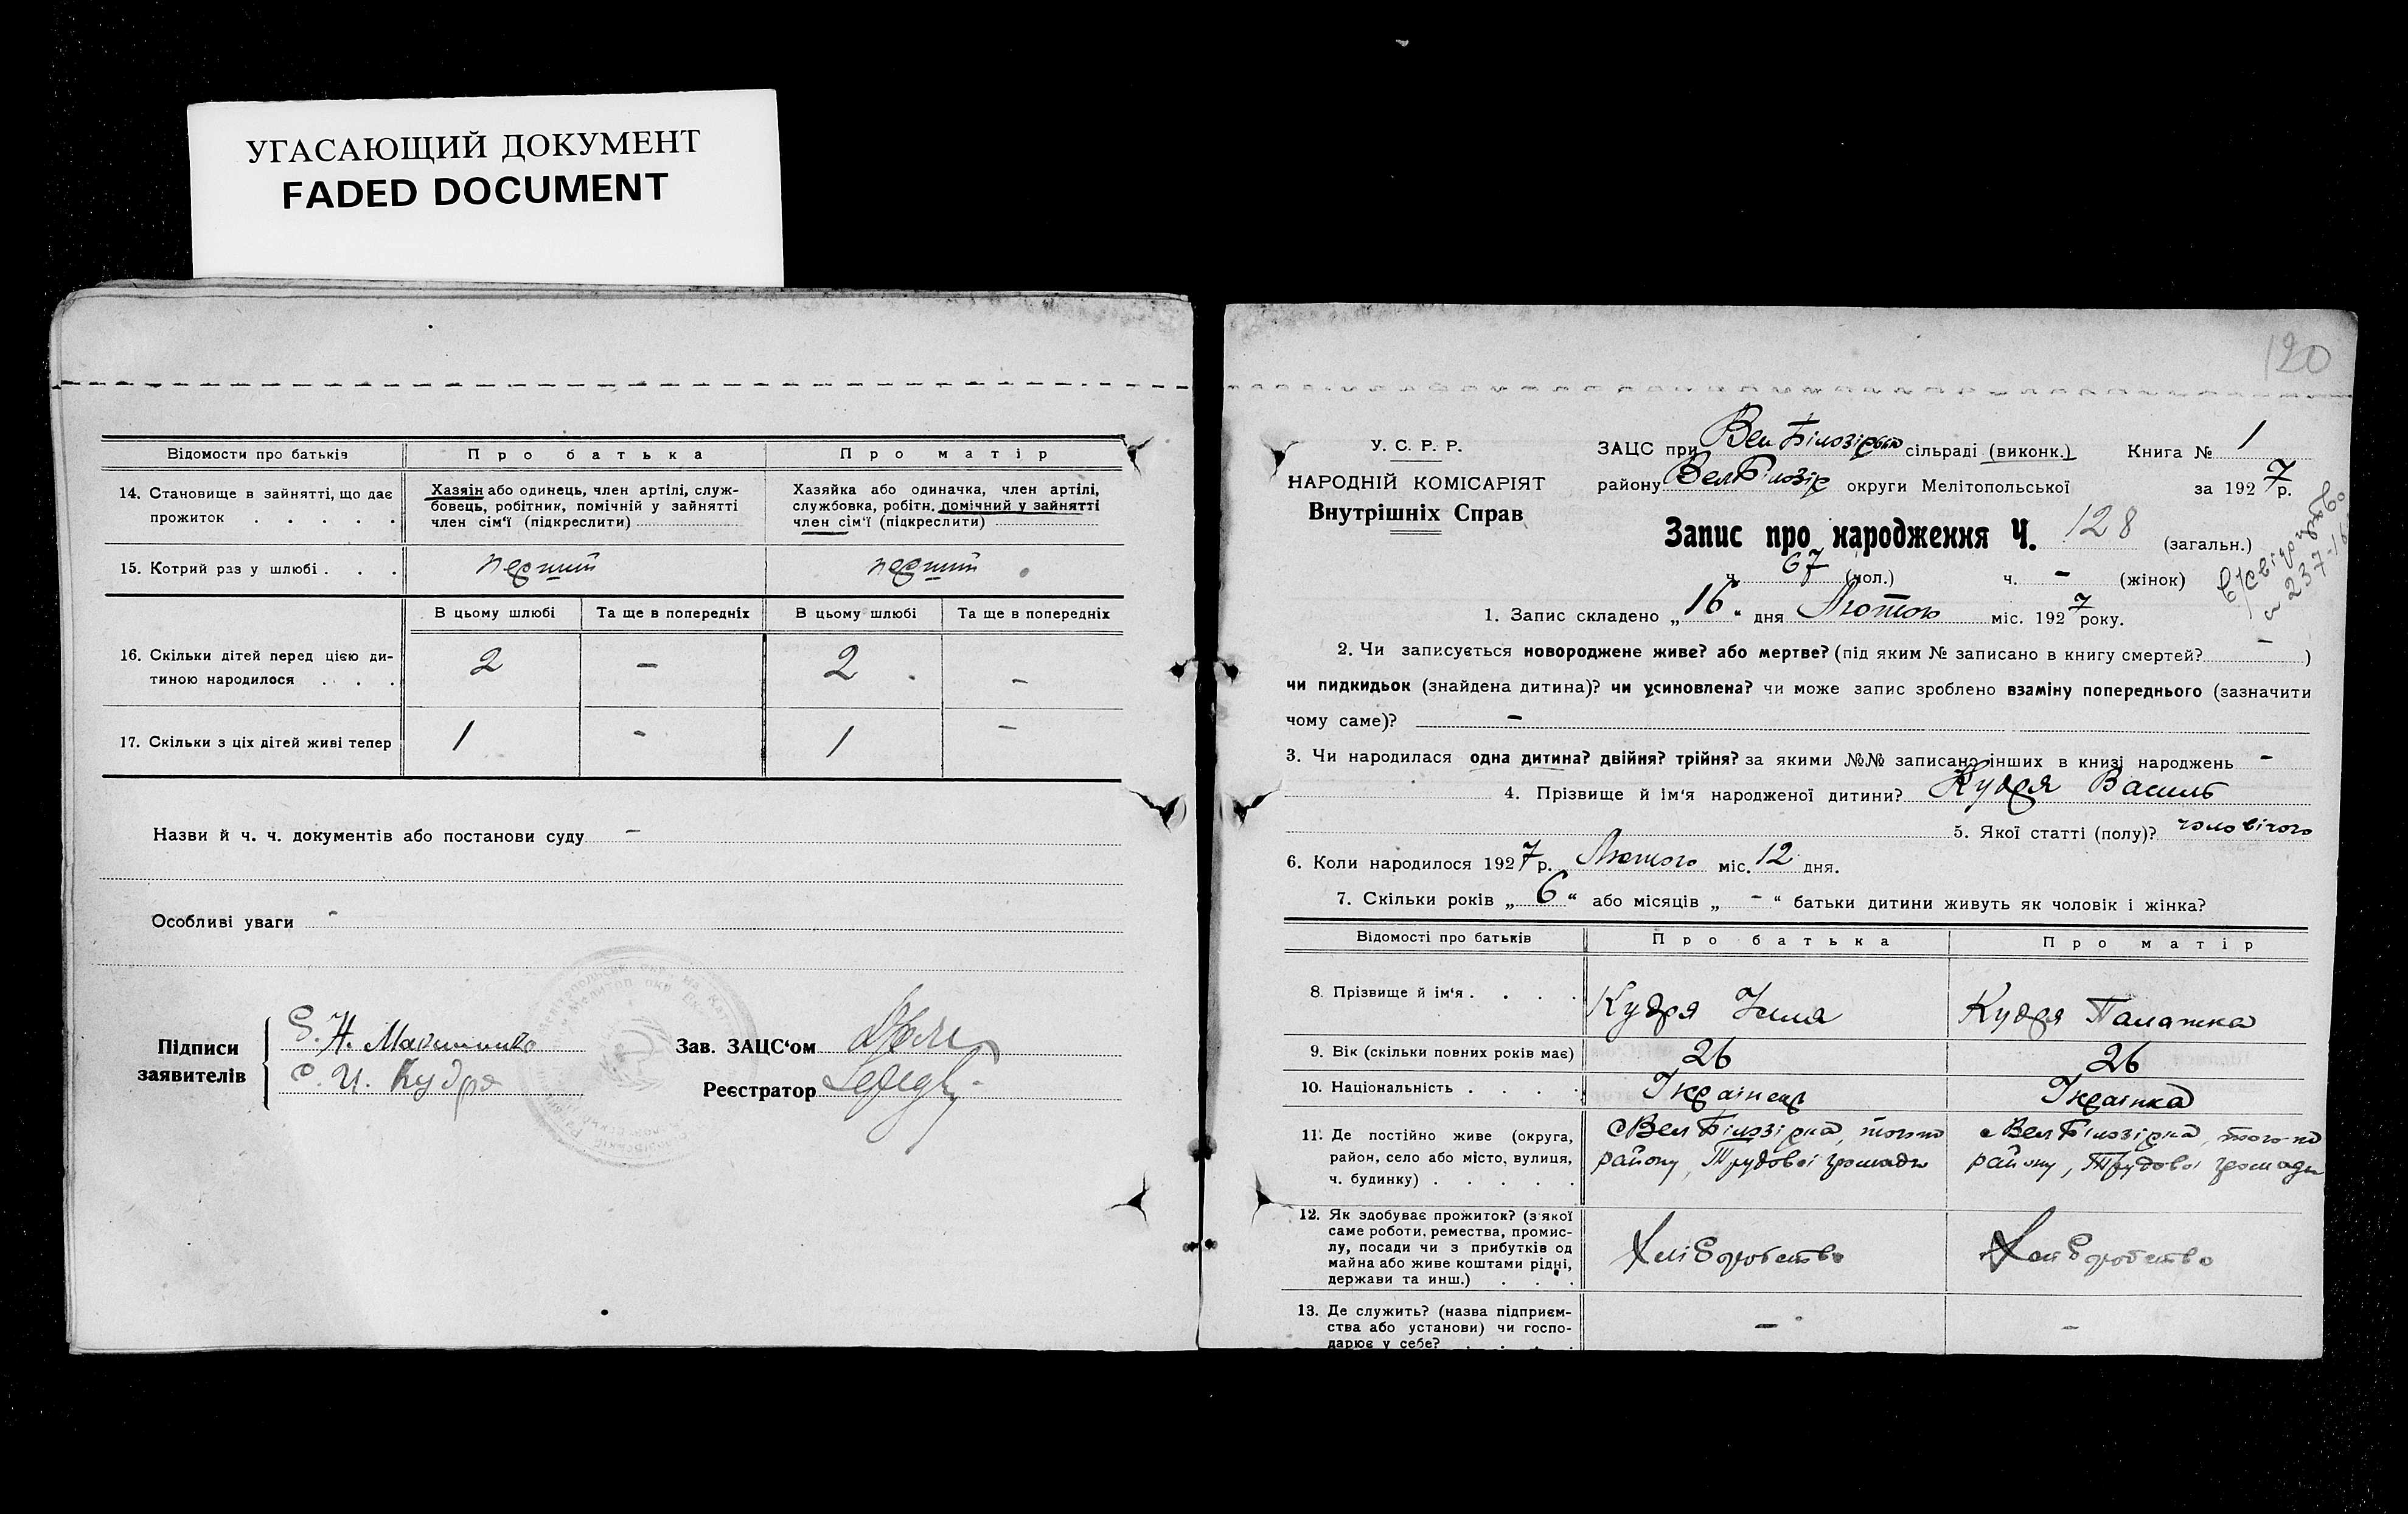 УГАСАЮЩИЙ ДОКУМЕНТ
FADED DOCUMENT
Відомости про батьків
Про батька
Про матір
14. Становище в зайнятті, що дає прожиток . . . . .
Хазяін або одинець, член артілі, служ-
бовець, робітник, помічній у зайнятті
член сім'ї (підкреслити)
Хазяйка або одиначка, член артілі,
службовка, робітн. помічний у зайнятті
член сім'ї (підкреслити)
15. Котрий раз у шлюбі . . .
перший
перший
В цьому шлюбі
Та ще в попередніх
В цьому шлюбі
Та ще в попередніх
16. Скільки дітей перед цією ди-
тиною народилося . . .
2 — 2 —
17. Скільки з ціх дітей живі тепер
1 - 1 -
Назви й ч. ч. документів або постанови суду -
Особливі уваги -
Підписи
заявителів
Є. И. Кудря
Зав. ЗАЦС'ом
Реєстратор
120
У. С. Р. Р.
НАРОДНІЙ КОМІСАРІЯТ
Внутрішніх Справ
ЗАЦС при Вел Білозірькій сільраді (виконк.) Книга № 1
району Вел Білозір округи Мелітопольської за 1927 р.
Запис про народження Ч. 128 (загальн.)
ч. 67 (чол.) ч. - (жінок)
1. Запис складено „16“ дня Лютого міс. 1927 року.
2. Чи записується новороджене живе? або мертве? (під яким № записано в книгу смертей? - )
чи пидкидьок (знайдена дитина)? чи усиновлена? чи може запис зроблено взаміну попереднього (зазначити
чому саме)? -
3. Чи народилася одна дитина? двійня? трійня? за якими №№ записано інших в книзі народжень -
4. Прізвище й ім'я народженої дитини? Кудря Василь
5. Якої статті (полу)? чоловічого
6. Коли народилося 1927 р. Лютого міс. 12 дня.
7. Скільки років „6“ або місяців „-“ батьки дитини живуть як чоловік і жінка?
Відомості про батьків
Про батька
Про матір
8. Прізвище й ім'я . . . .
Кудря Ілля
Кудря Палажка
9. Вік (скільки повних років має)
26
26
10. Національність . . . .
Українець
Українка
11. Де постійно живе (округа,
район, село або місто, вулиця,
ч. будинку) . . . . .
с Вел Білозірка, того по
району, Трудової громади
с Вел Білозірка, того по
району, Трудової громади
12. Як здобуває прожиток? (з якої
саме роботи, ремества, промис-
лу, посади чи з прибутків од
майна або живе коштами рідні,
держави та инш.) . . .
Хліборобство
Хліборобство
13. Де служить? (назва підприєм-
ства або установи) чи госпо-
дарює у себе? . . . .
-
-